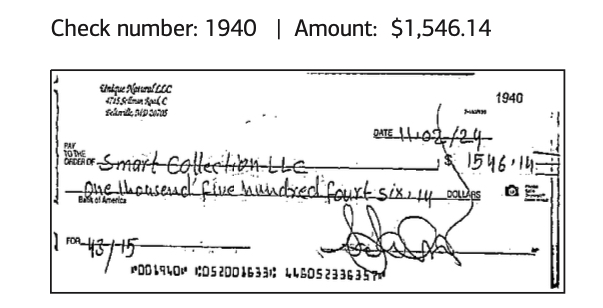 Check number: 1940 | Amount: $1,546.14
Unique Natural LLC
1940
DATE 11.02/24
PAY
TO THE
ORDER OF Smart Collection LLC $ 1546.14
One thousend five hundred fourt six, 14 DOLLARS
Bank of America
FOR 43/15
⑈001940⑈ ⑆052001633⑆ 446052336357⑈